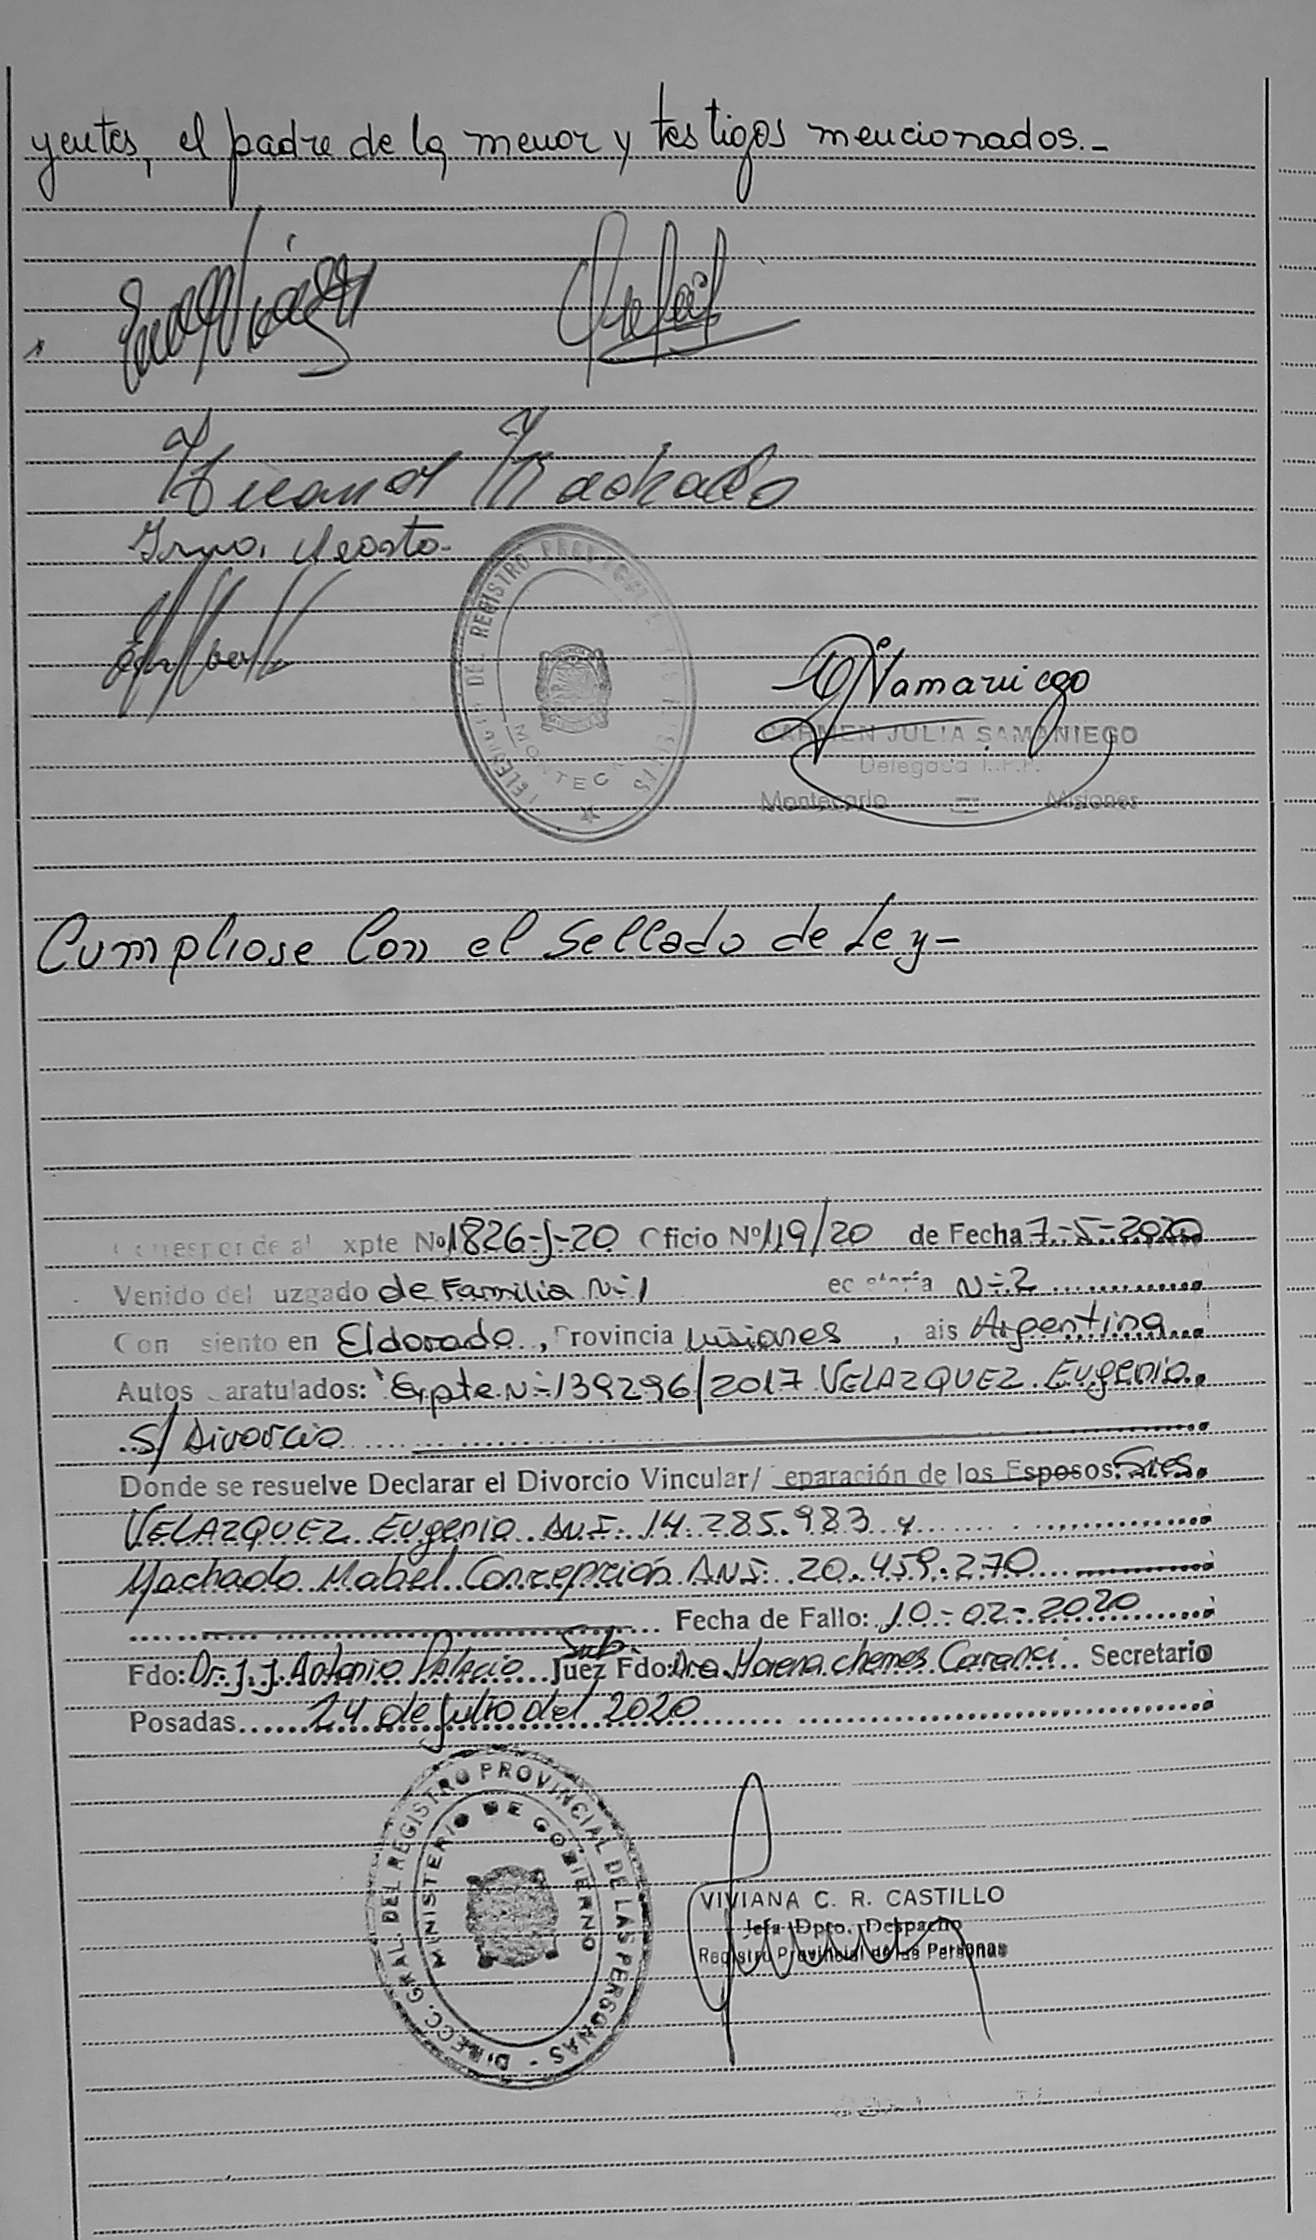 yentes, el padre de la menor y testigos mencionados.-
Machado
CARMEN JULIA SAMANIEGO
Delegada
Montecarlo Misiones
Cumpliose Con el Sellado de Ley-
Corresponde al xpte Nº 1826-J-20 Oficio Nº 119/20 de Fecha 7-5-2020
Venido del uzgado de Familia Nº 1 ec etaría Nº 2
Con siento en Eldorado, Provincia Misiones, ais Argentina
Autos aratulados: Expte Nº 139296/2017 VELAZQUEZ Eugenio
S/ Divorcio
Donde se resuelve Declarar el Divorcio Vincular/ eparación de los Esposos: Sres.
VELAZQUEZ Eugenio D.N.I. 14.285.983 y
Machado Mabel Concepción D.N.I. 20.459.270
Fecha de Fallo: 10-02-2020
Fdo: Dr. J. J. Antonio Palacio Sub. Juez Fdo: Dra. Morena Secretario
Posadas 24 de Julio del 2020
DIRECC. GRAL. DEL REGISTRO PROVINCIAL DE LAS PERSONAS -
MINISTERIO DE GOBIERNO
VIVIANA C. R. CASTILLO
Jefa Dpto. Despacho
Registro Provincial de las Personas